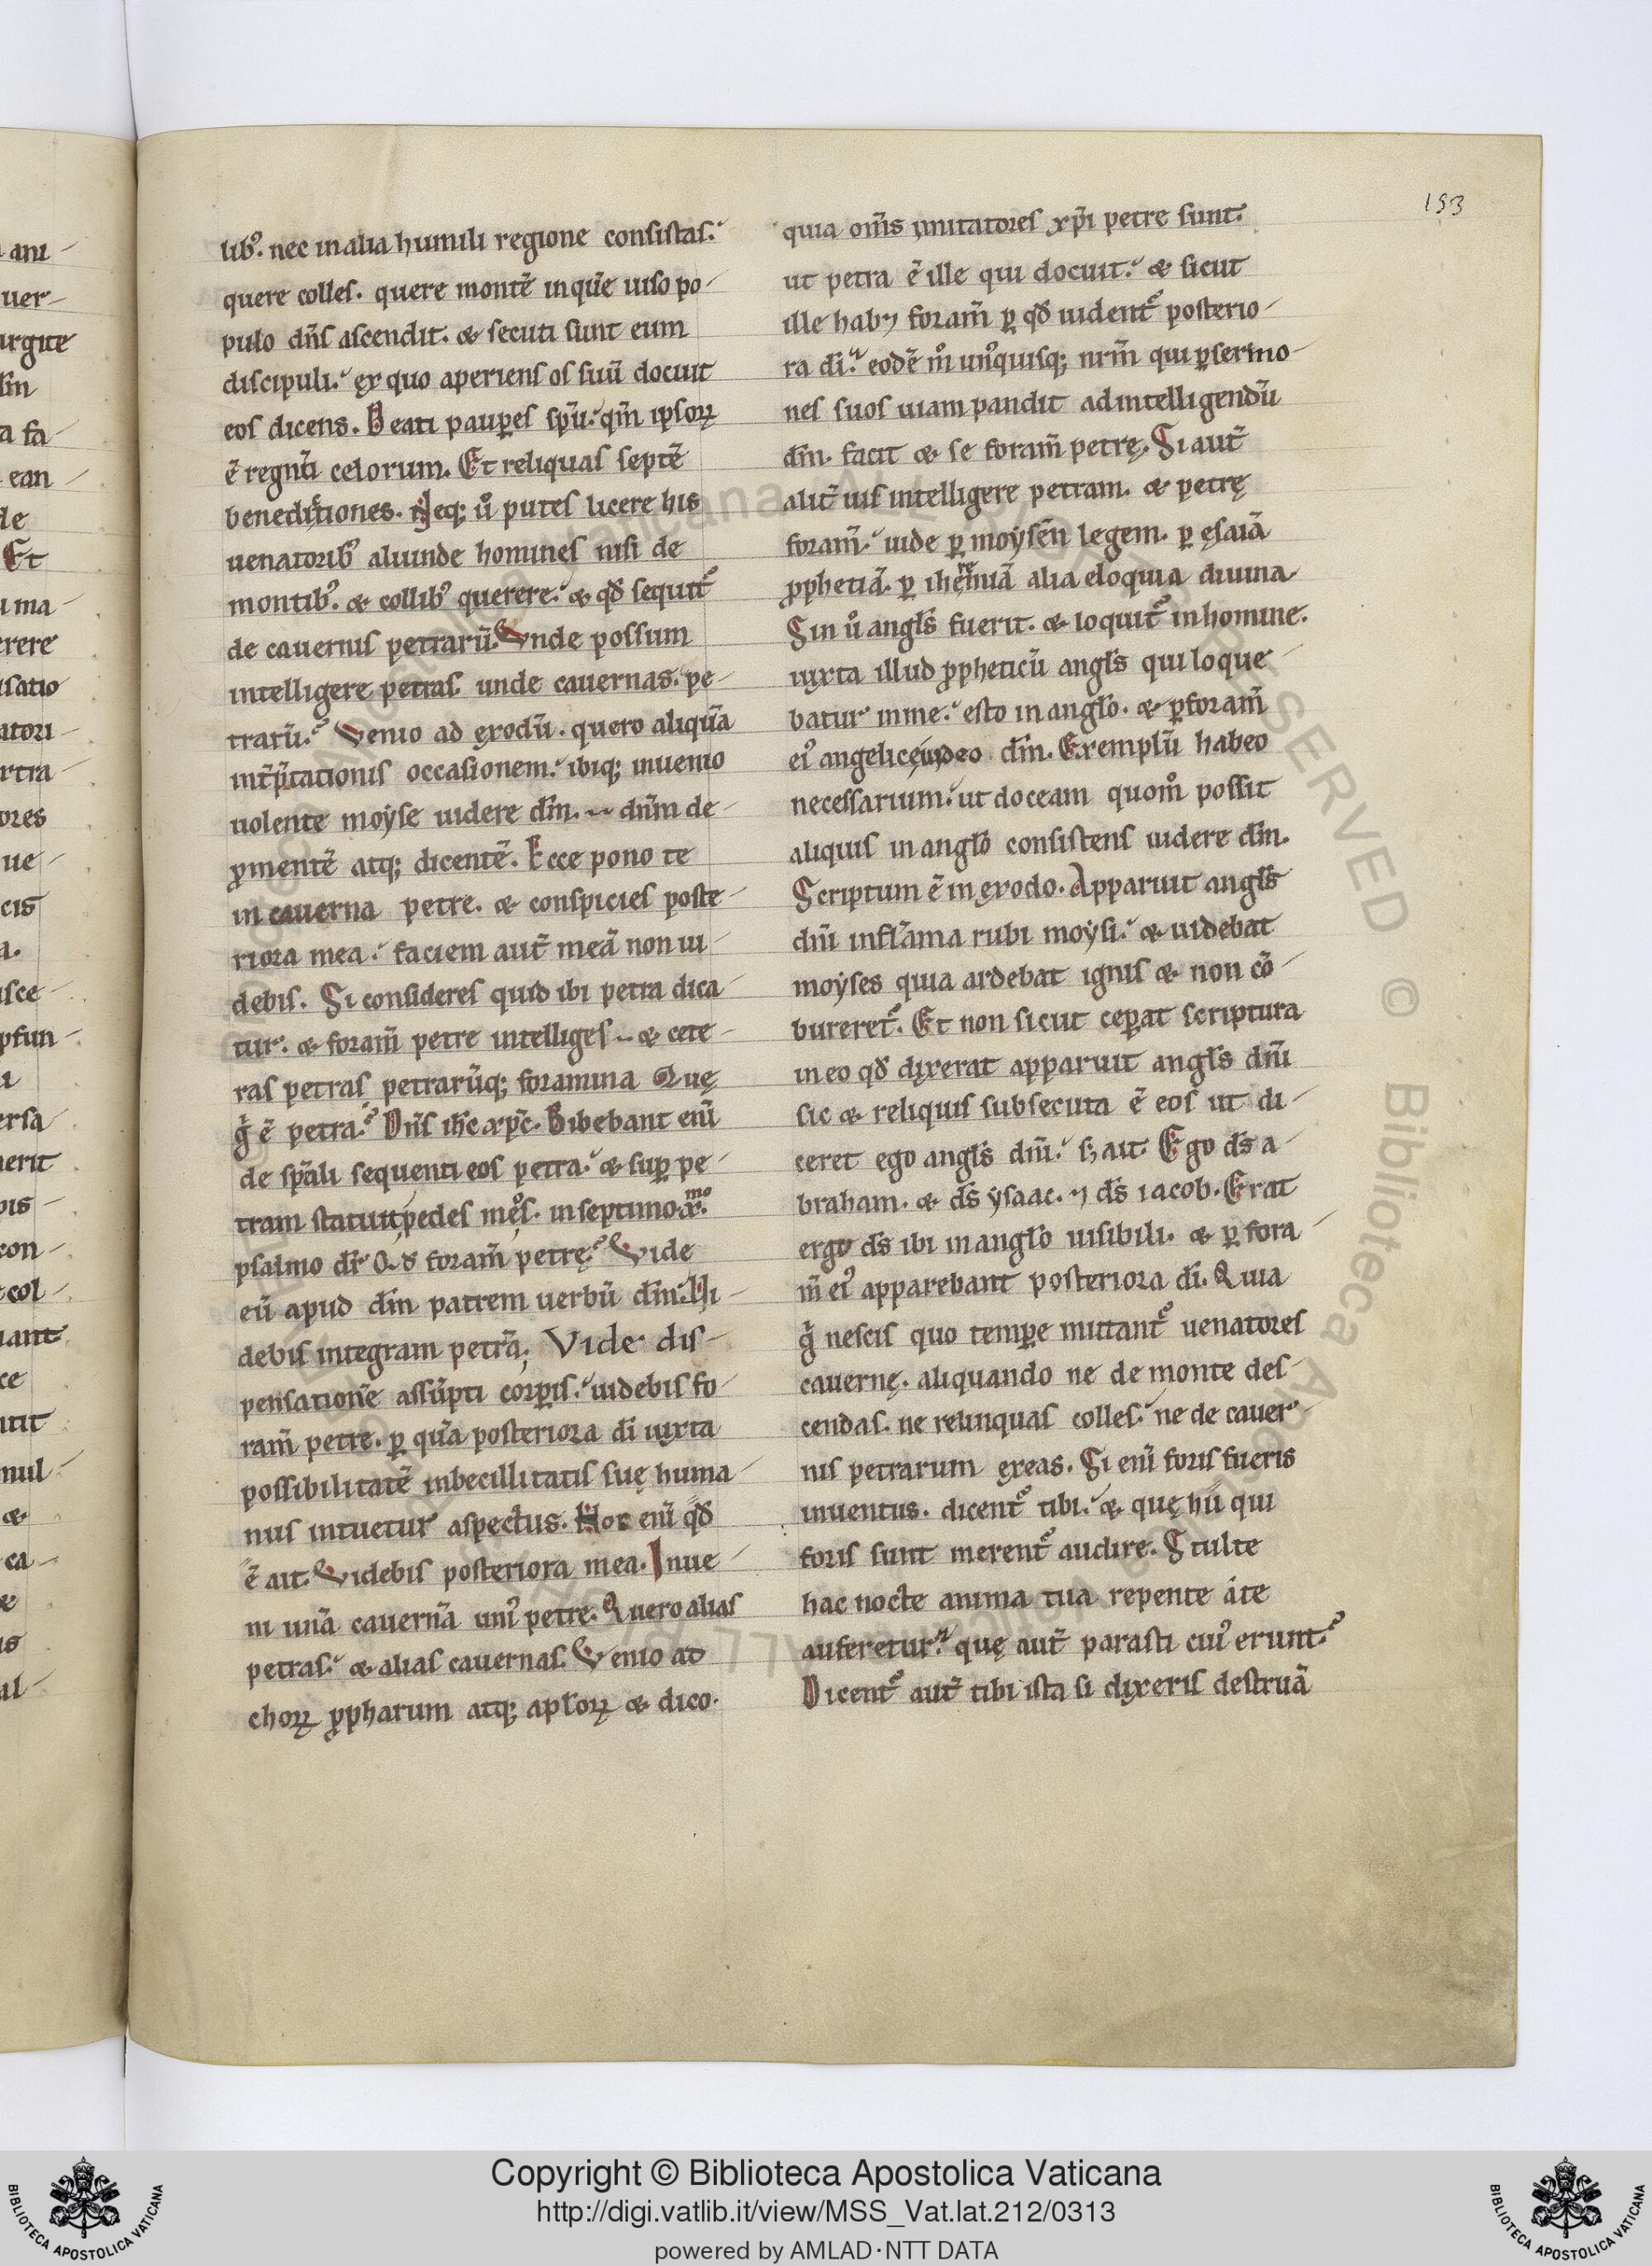 153
lib᾽. nec in alia humili regione consistas.
quere colles. quere montē in quē uiso po-
pulo dn̄s ascendit. & secuti sunt eum
discipuli. ex quo aperiens os suū docuit
eos dicens. Beati pauꝑes spū. qm̄ ipsoꝝ
ē regnū celorum. Et reliquas septē
benedictiones. Neq; u͛o putes licere his
uenatorib᾽ aliunde homines nisi de
montib᾽. & collib᾽ querere. & qđ sequit᾽
de cauernis petrarū. Unde possum
intelligere petras. unde cauernas. pe-
trarū. Venio ad exodū. quero aliquā
int̄p̄tationis occasionem. ibiq; inuenio
uolente moẏse uidere dm̄. dn̄m de
ꝓmentē atq; dicentē. Ecce pono te
in cauerna petre. & conspicies poste-
riora mea. faciem aut̄ meā non ui-
debis. Si consideres quid ibi petra dica-
tur. & foram̄ petre intelliges & cete-
ras petras petrarūq; foramina Quę
gͥ ē petra. Dn̄s ih̄c xp̄c. Bibebant enī
de spāli sequenti eos petra. & suꝑ pe-
tram statuit pedes meos. in septimo x.mo
psalmo dr̄ Qđ foram̄ petrę. Vide
eū apud dm̄ patrem uerbū dm̄. Ui-
debis integram petrā. Vide dis-
pensationē assūpti corꝑis. uidebis fo-
ram̄ petre. ꝑ quā posteriora dī iuxta
possibilitatē inbecillitatis suę huma-
nus intuetur aspectus. Hoc enī qđ
ē ait. Videbis posteriora mea. Inue-
ni unā cauernā uni᾽ petre. Quero alias
petras. & alias cauernas. Venio ad
choꝝ ꝓpharum atq; aplͦoꝝ & dico.
quia om̄s imitatores xp̄i petre sunt.
ut petra ē ille qui docuit. & sicut
ille habꝫ foram̄ ꝑ qđ uident᾽ posterio-
ra dī. eodē mͦ unͦquisq; nr̄m qui ꝑ sermo-
nes suos uiam pandit ad intelligendū
dm̄. facit & se foram̄ petrę. Si aut̄
alit̄ uis intelligere petram. & petrę
foram̄. uide ꝑ moẏsēn legem. ꝑ ęsaiā
ꝓphetiā. ꝑ iheremiā alia eloquia diuina
Sin u͛o angl̄s fuerit. & loquit᾽ in homine.
iuxta illud ꝓpheticū angl̄s qui loque-
batur in me. esto in anglo. & ꝑ foram̄
ei᾽ angelice uideo dm̄. Exemplū habeo
necessarium. ut doceam quomͦ possit
aliquis in anglo consistens uidere dm̄.
Scriptum ē in exodo. Apparuit angl̄s
dn̄i in flāma rubi moẏsi. & uidebat
moẏses quia ardebat ignis & non cō-
bureret᾽. Et non sicut ceꝑat scriptura
in eo qđ dixerat apparuit angl̄s dn̄i
sic & reliquis subsecuta ē eos ut di-
ceret ego angl̄s dn̄i. sꝫ ait. Ego ds̄ a-
braham. & ds̄ ẏsaac. ⁊ ds̄ iacob. Erat
ergo ds̄ ibi in anglo uisibili. & ꝑ fora-
m̄ ei᾽ apparebant posteriora dī. Quia
gͥ nescis quo tempe mittant᾽ uenatores
cauernę. aliquando ne de monte des-
cendas. ne relinquas colles. ne de cauer-
nis petrarum exeas. Si enī foris fueris
inuentus. dicent᾽ tibi. & quę hii qui
foris sunt merent᾽ audire. Stulte
hac nocte anima tua repente a te
auferetur. quę aut̄ parasti cui᾽ erunt.
Dicent᾽ aut̄ tibi ista si dixeris destruā
ani-
uer-
urgite
a fa-
ean-
de
Et
uma-
rere
isatio
ores
ue-
cis
isce-
ersa-
erit
con-
col-
ant
ce
mul-
&
ca-
al-
Copyright © Biblioteca Apostolica Vaticana
http://digi.vatlib.it/view/MSS_Vat.lat.212/0313
powered by AMLAD·NTT DATA
BIBLIOTECA APOSTOLICA VATICANA
BIBLIOTECA APOSTOLICA VATICANA